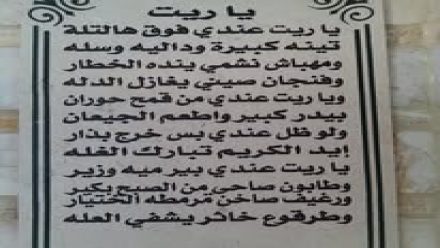 يا ريت
يا ريت عندي فوق هالتلة
تينه كبيرة وداليه وسله
ومهباش نشمي ينده الخطار
وفنجان صيني يغازل الدله
ويا ريت عندي من قمح حوران
بيدر كبير واطعم الجيعان
ولو ظل عندي بس خرج بذار
إيد الكريم تبارك الغله
يا ريت عندي بير ميه وزير
وطابون صاحي من الصبح بكير
ورغيف ساخن مرمطه الختيار
وطرقوع خاثر يشفي العله